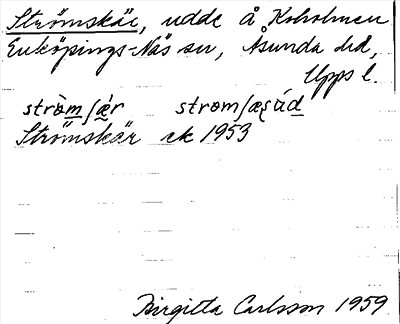 Strömskär, udde å Koholmen
Enköpings-Näs sn, Åsunda hd,
Upps l.
strömʃæ̀r stromʃæʂùd
Strömskär ek 1953
Birgitta Carlsson 1959